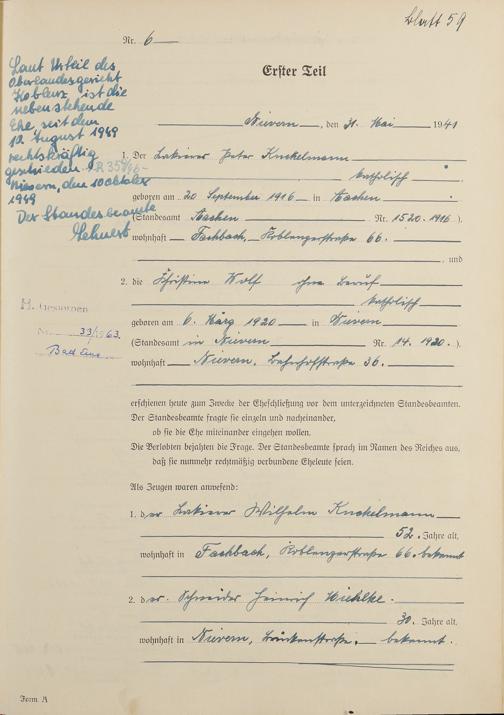 Blatt 59
Nr. 6
Erster Teil
Laut Urteil des
Oberlandesgericht
Koblenz ist die
nebenstehende
Ehe seit dem
10. August 1949
rechtskräftig
geschieden
Nievern, den 10 Oktober
1949
Der Standesbeamte
Nievern, den 31. Mai 1941
1. Der Lakierer Peter Knckelmann
katholisch
geboren am 20 September 1916 in Aachen
(Standesamt Aachen Nr. 1520. 1916 ).
wohnhaft Fachbach, Koblenzerstraße 66.
, und
2. die Christine Wolf ohne Beruf
katholisch
geboren am 6. März 1920 in Nievern
(Standesamt in Nievern Nr. 14. 1920. ).
wohnhaft Nievern, Bahnhofstraße 36.
H. Gestorben
Nr. 33/1963.
Bad Ems
erschienen heute zum Zwecke der Eheschließung vor dem unterzeichneten Standesbeamten.
Der Standesbeamte fragte sie einzeln und nacheinander,
ob sie die Ehe miteinander eingehen wollen.
Die Verlobten bejahten die Frage. Der Standesbeamte sprach im Namen des Reiches aus,
daß sie nunmehr rechtmäßig verbundene Eheleute seien.
Als Zeugen waren anwesend:
1. der Lakierer Wilhelm Knckelmann
52. Jahre alt,
wohnhaft in Fachbach, Koblenzerstraße 66. bekannt
2. der. Schneider Heinrich
30. Jahre alt,
wohnhaft in Nievern, bekannt.
Form. A